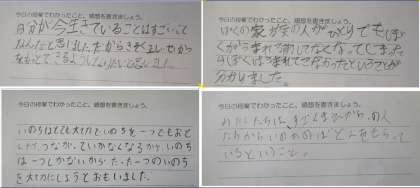 今日の授業でわかったこと、感想を書きましょう。
自分が今生きていることはすごいこと
なんだと思いました。だからきそくえいせいから
今日の授業でわかったこと、感想を書きましょう。
ぼくの家族の人がひとりでもしぼ
くがうまれる前してなくなってしまう
すぼくはうまれてこなかったということが
分かりました。
今日の授業でわかったこと、感想を書きましょう。
いのちはとても大切でいのちを一つでもおと
したら、つながっていかなくなるから、いのち
は一つしかないから、たった一つのいのち
を大切にしようとおもいました。
今日の授業でわかったこと、感想を書きましょう。
わたしたちは、
たちからいのちのばとんをもらって
いるということ。